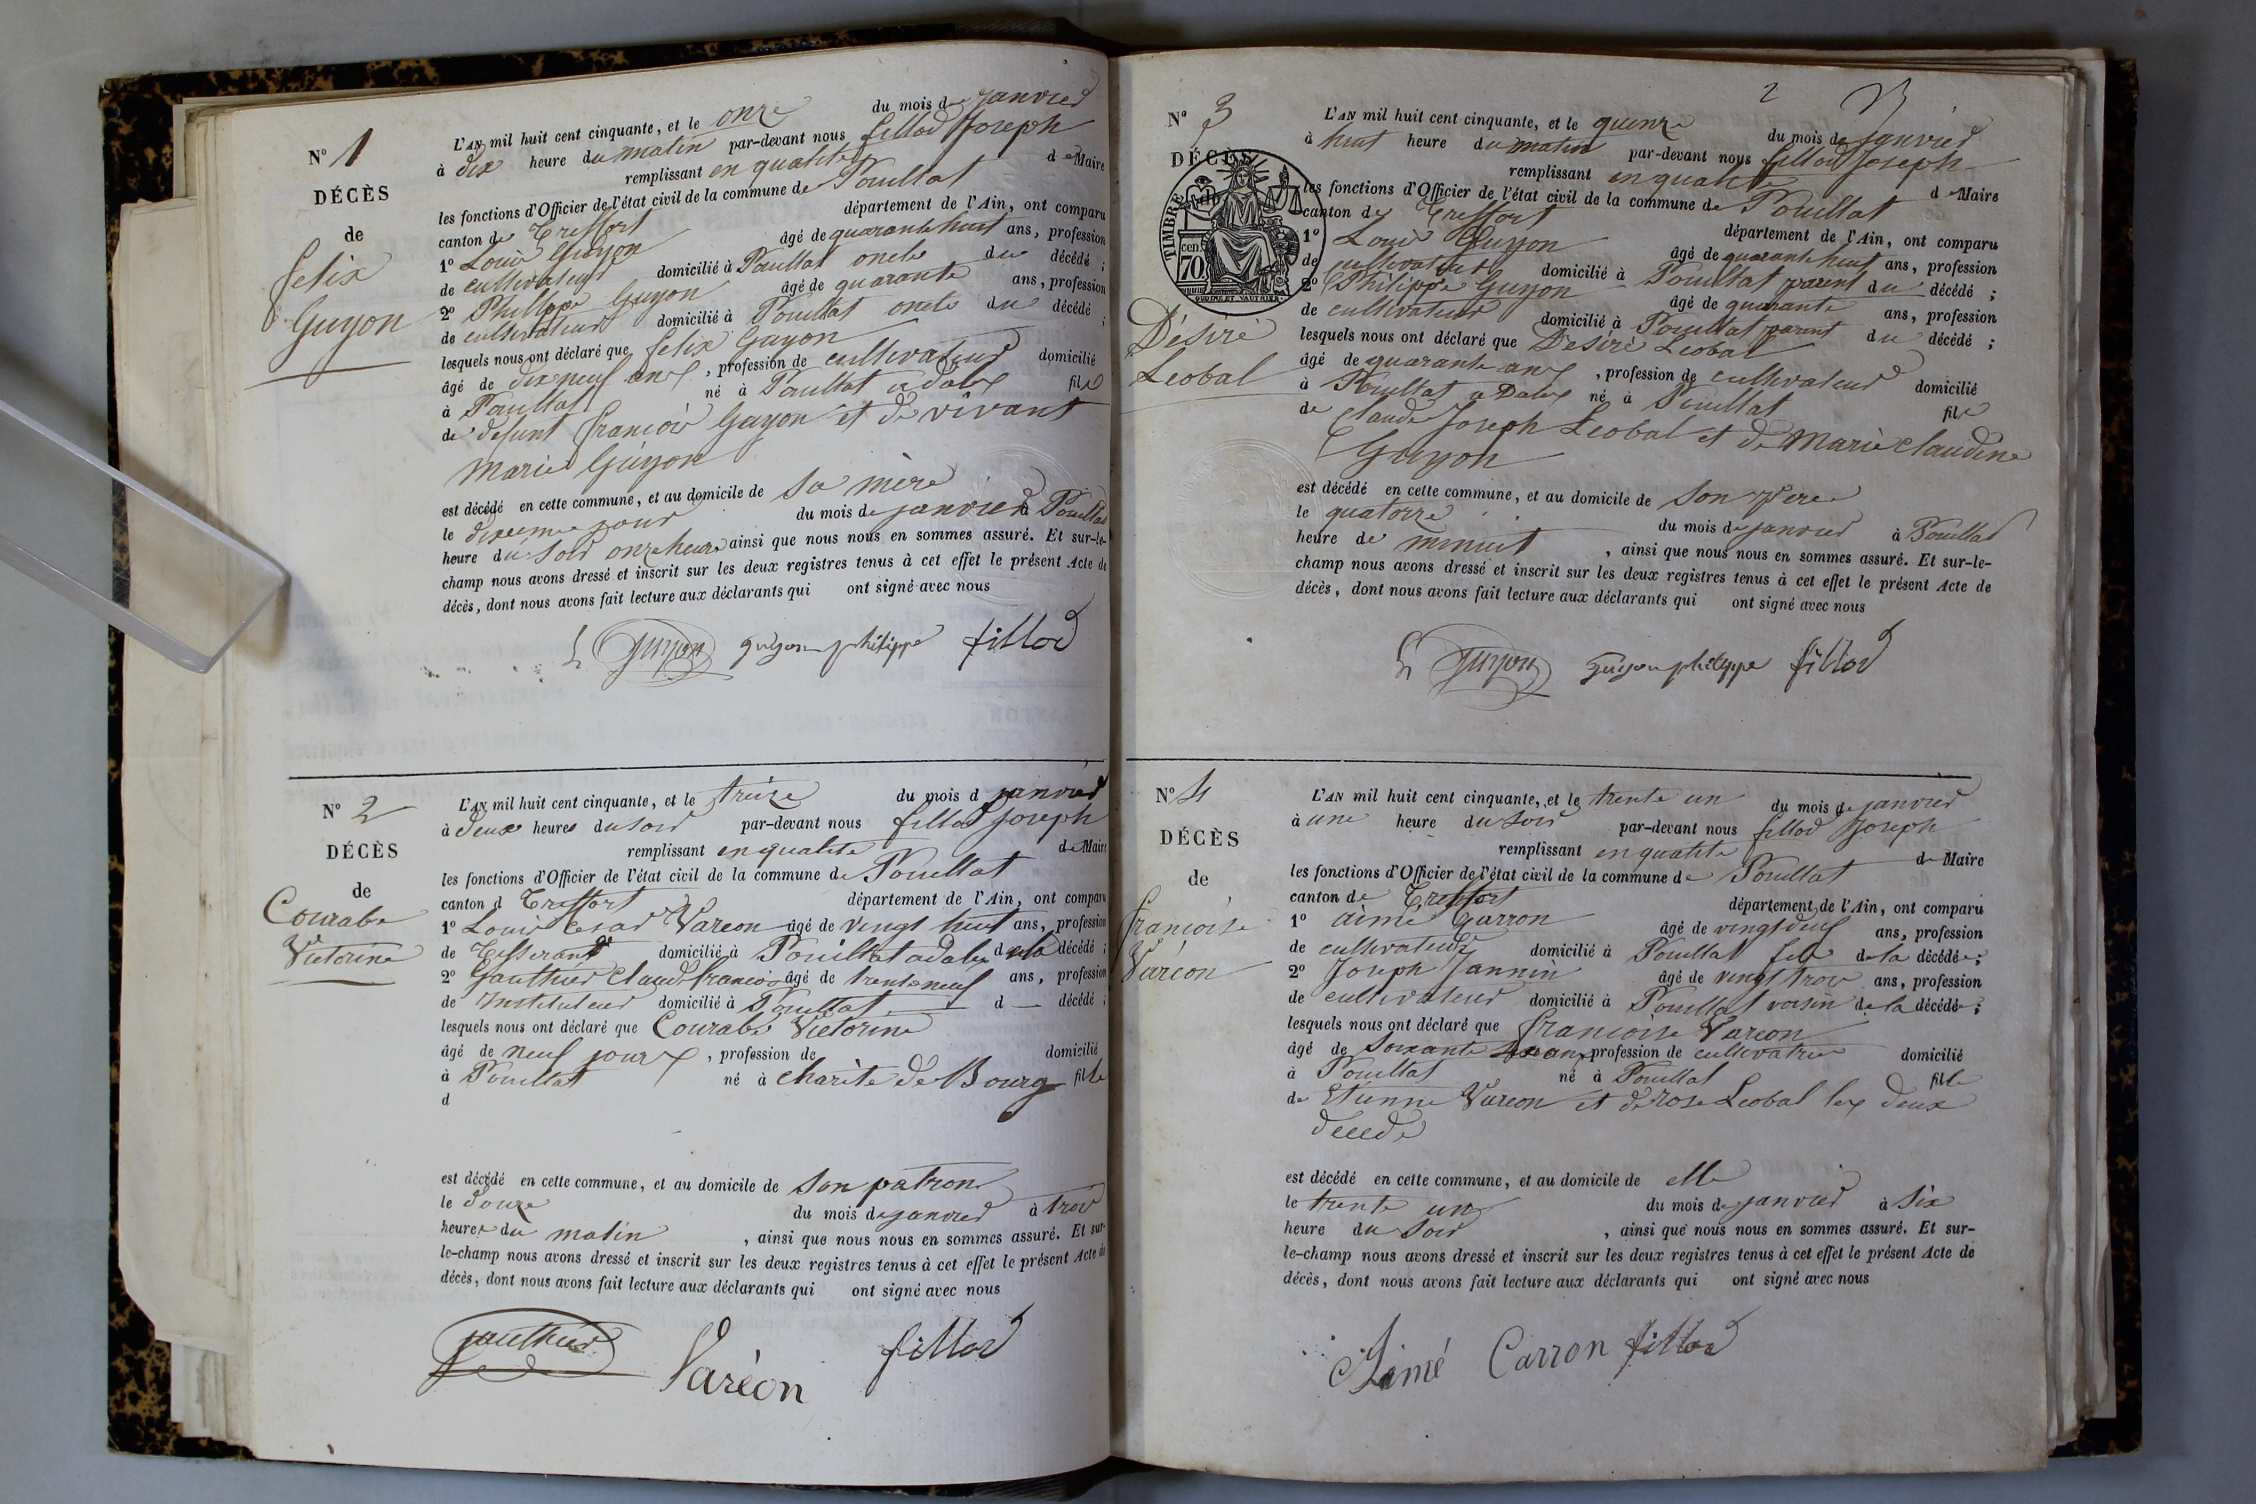 N° 1
DÉCÈS
de
felix
Guyon
L'AN mil huit cent cinquante, et le onze du mois de janvier
à dix heure du matin par-devant nous fillod Joseph
remplissant en qualité de Maire
les fonctions d'Officier de l'état civil de la commune de Pouillat
canton de Treffort département de l'Ain, ont comparu
1° Louis Guyon âgé de quarante huit ans, profession
de cultivateur domicilié à Pouillat oncle du décédé ;
2° Philippe Guyon âgé de quarante ans, profession
de cultivateur domicilié à Pouillat oncle du décédé ;
lesquels nous ont déclaré que felix Guyon
âgé de dix neuf ans, profession de cultivateur domicilié
à Pouillat né à Pouillat a dalex fils
de defunt françois Guyon et de vivant
marie Guyon
est décédé en cette commune, et au domicile de sa mère
le dixieme jour du mois de janvier à Pouillat
heure du soir onze heure, ainsi que nous nous en sommes assuré. Et sur-le-
champ nous avons dressé et inscrit sur les deux registres tenus à cet effet le présent Acte de
décès, dont nous avons fait lecture aux déclarants qui ont signé avec nous
L Guyon guyon philippe fillod
N° 2
DÉCÈS
de
Courabe
Victorine
L'AN mil huit cent cinquante, et le treize du mois d janvier
à deux heures du soir par-devant nous fillod Joseph
remplissant en qualité de Maire
les fonctions d'Officier de l'état civil de la commune de Pouillat
canton d Treffort département de l'Ain, ont comparu
1° Louis Cesar Vareon âgé de vingt huit ans, profession
de Tisserant domicilié à Pouillat a dalex de la décédé ;
2° Gauthier Claude françois âgé de trente neuf ans, profession
de Instituteur domicilié à Pouillat d — décédé ;
lesquels nous ont déclaré que Courabe Victorine
âgé de neuf jours, profession de domicilié
à Pouillat né à charite de Bourg fille
d
est décédé en cette commune, et au domicile de son patron
le douze du mois de janvier à trois
heures du matin, ainsi que nous nous en sommes assuré. Et sur-
le-champ nous avons dressé et inscrit sur les deux registres tenus à cet effet le présent Acte de
décès, dont nous avons fait lecture aux déclarants qui ont signé avec nous
gauthier Varéon fillod
2
N° 3
DÉCÈS
TIMBRE
cen.
70
Désiré
Leobal
L'AN mil huit cent cinquante, et le quinze du mois de janvier
à huit heure du matin par-devant nous fillod Joseph
remplissant en qualité de Maire
les fonctions d'Officier de l'état civil de la commune de Pouillat
canton de Treffort département de l'Ain, ont comparu
1° Louis Guyon âgé de quarante huit ans, profession
de cultivateur domicilié à Pouillat parent du décédé ;
2° Philippe Guyon âgé de quarante ans, profession
de cultivateur domicilié à Pouillat parent du décédé ;
lesquels nous ont déclaré que Desiré Leobal
âgé de quarante ans, profession de cultivateur domicilié
à Pouillat a Dalex né à Pouillat fils
de Claude Joseph Leobal et de Marie claudine
Guyon
est décédé en cette commune, et au domicile de son pere
le quatorze du mois de janvier à Pouillat
heure de minuit, ainsi que nous nous en sommes assuré. Et sur-le-
champ nous avons dressé et inscrit sur les deux registres tenus à cet effet le présent Acte de
décès, dont nous avons fait lecture aux déclarants qui ont signé avec nous
L Guyon guyon philippe fillod
N° 4
DÉCÈS
de
françoise
Vareon
L'AN mil huit cent cinquante, et le trente un du mois de janvier
à une heure du soir par-devant nous fillod Joseph
remplissant en qualité de Maire
les fonctions d'Officier de l'état civil de la commune de Pouillat
canton de Treffort département de l'Ain, ont comparu
1° aimé Carron âgé de vingt deux ans, profession
de cultivateur domicilié à Pouillat fils de la décédée ;
2° Joseph Jannin âgé de vingt trois ans, profession
de cultivateur domicilié à Pouillat voisin de la décédée ;
lesquels nous ont déclaré que françoise Vareon
âgé de soixante ans, profession de cultivatrice domicilié
à Pouillat né à Pouillat fille
de Etienne Vareon et de rose Leobal lex deux
decede
est décédé en cette commune, et au domicile de elle
le trente un du mois de janvier à six
heure du soir, ainsi que nous nous en sommes assuré. Et sur-
le-champ nous avons dressé et inscrit sur les deux registres tenus à cet effet le présent Acte de
décès, dont nous avons fait lecture aux déclarants qui ont signé avec nous
Aimé Carron fillod